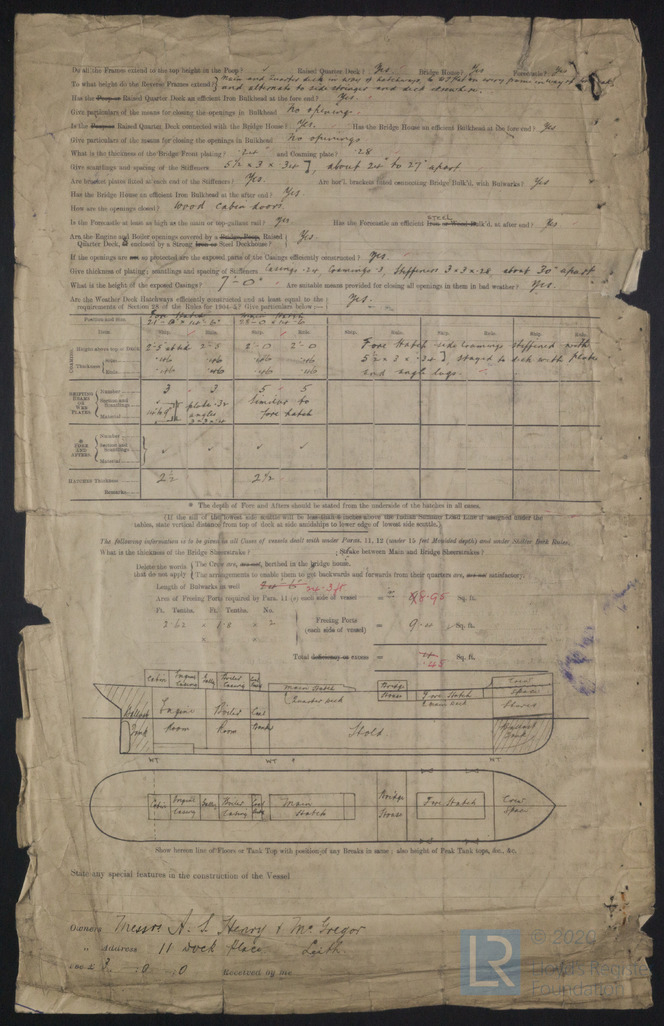 Do all the Frames extend to the top height in the Poop? ✓ Raised Quarter Deck? Yes Bridge House? Yes Forecastle? Yes
To what height do the Reverse Frames extend? Main and quarter deck in way of hatchways, to
and alternate to side stringer and deck elsewhere.
Has the Poop or Raised Quarter Deck an efficient Iron Bulkhead at the fore end? Yes.
Give particulars of the means for closing the openings in Bulkhead No openings.
Is the Poop or Raised Quarter Deck connected with the Bridge House? Yes. Has the Bridge House an efficient Bulkhead at the fore end? Yes
Give particulars of the means for closing the openings in Bulkhead No openings
What is the thickness of the Bridge Front plating? .24" and Coaming plate? .28
Give scantlings and spacing of the Stiffeners 5½ x 3 x .34 ], about 24" to 27" apart
Are bracket plates fitted at each end of the Stiffeners? Yes. Are hor'l. brackets fitted connecting Bridge Bulk'd, with Bulwarks? Yes
Has the Bridge House an efficient Iron Bulkhead at the after end? Yes.
How are the openings closed? Wood cabin doors.
Is the Forecastle at least as high as the main or top-gallant rail? Yes. Has the Forecastle an efficient Iron or Wood STEEL Bulk'd, at after end? Yes
Are the Engine and Boiler openings covered by a Bridge, Poop, Raised
Quarter Deck, & enclosed by a Strong Iron or Steel Deckhouse? Yes.
If the openings are not so protected are the exposed parts of the Casings efficiently constructed? Yes.
Give thickness of plating; scantlings and spacing of Stiffeners Casings .24, Coamings .3, Stiffeners 3 x 3 x .28, about 30" apart
What is the height of the exposed Casings? 7'-0" Are suitable means provided for closing all openings in them in bad weather? Yes.
Are the Weather Deck Hatchways efficiently constructed and at least equal to the
requirements of Section 28 of the Rules for 1904-5? Give particulars below:— Yes.
Position and Size Fore Hatch Main Hatch
Item Ship. Rule. Ship. Rule. Ship. Rule. Ship. Rule. Ship. Rule.
COAMING Height above top of Deck 2'-5 2'-5 2'-0 2'-0 Fore hatch side coamings stiffened with
Thickness Sides .46 .46 .46 .46 5½ x 3 x .34 ] stayed to deck with plates
Ends .46 .46 .46 .46 and angle lugs.
SHIFTING BEAMS OR WEB PLATES Number 3 3 5 5
Section and Scantlings plate .32 Similar to
Material angles fore hatch
FORE AND AFTERS Number
Section and Scantlings ✓ ✓ ✓ ✓
Material
HATCHES Thickness 2½ 2½
Remarks
* The depth of Fore and Afters should be stated from the underside of the hatches in all cases.
(If the sill of the lowest side scuttle will be less than 6 inches above the Indian Summer Load Line if assigned under the
tables, state vertical distance from top of deck at side amidships to lower edge of lowest side scuttle.)
The following information is to be given in all Cases of vessels dealt with under Paras. 11, 12 (under 15 feet Moulded depth) and under Shelter Deck Rules.
What is the thickness of the Bridge Sheerstrake? ; Strake between Main and Bridge Sheerstrakes?
Delete the words that do not apply { The Crew are, are not, berthed in the bridge house.
The arrangements to enable them to get backwards and forwards from their quarters are, are not satisfactory.
Length of Bulwarks in well 24.3 ft
Area of Freeing Ports required by Para. 11 (e) each side of vessel = 8.95 Sq. ft.
Ft. Tenths. Ft. Tenths. No.
2.62 x 1.8 x 2 Freeing Ports (each side of vessel) = 9.4 Sq. ft.
x x
Total deficiency or excess = .45 Sq. ft.
Cabin Engine Casing Galley Boiler Casing Coal Bunk Main Hatch Bridge House Fore Hatch Crew Space
Quarter Deck Main Deck Stores
Ballast Tank Engine Room Boiler Room Coal Bunk Hold Ballast Tank
WT WT WT
Cabin Engine Casing Galley Boiler Casing Coal Bunk Main Hatch Bridge House Fore Hatch Crew Space
Show hereon line of Floors or Tank Top with position of any Breaks in same; also height of Peak Tank tops, &c., &c.
State any special features in the construction of the Vessel
Owners Messrs A. S. Henry & McGregor
" Address 11 Dock Place Leith
Fee £ 3 : 0 : 0 Received by me
LR © 2020
Lloyd's Register
Foundation